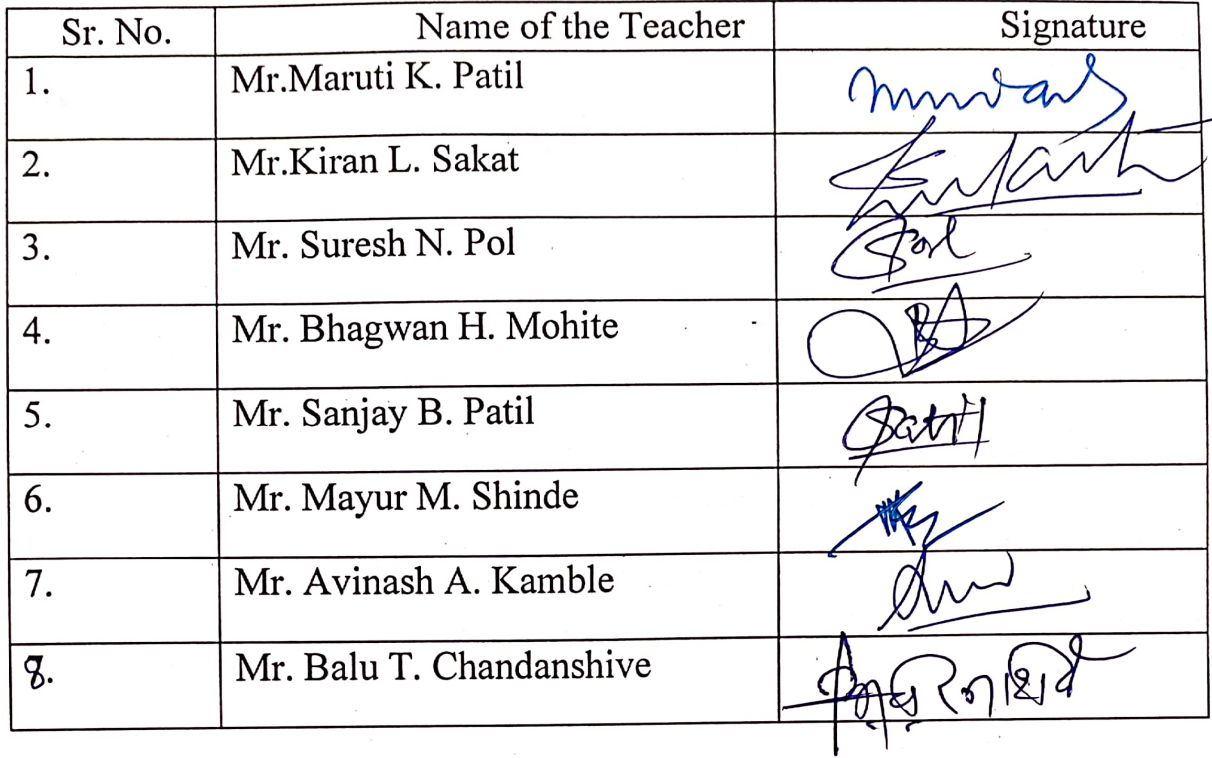 Sr. No. Name of the Teacher Signature
1. Mr.Maruti K. Patil
2. Mr.Kiran L. Sakat
3. Mr. Suresh N. Pol Pol
4. Mr. Bhagwan H. Mohite
5. Mr. Sanjay B. Patil Patil
6. Mr. Mayur M. Shinde
7. Mr. Avinash A. Kamble
8. Mr. Balu T. Chandanshive